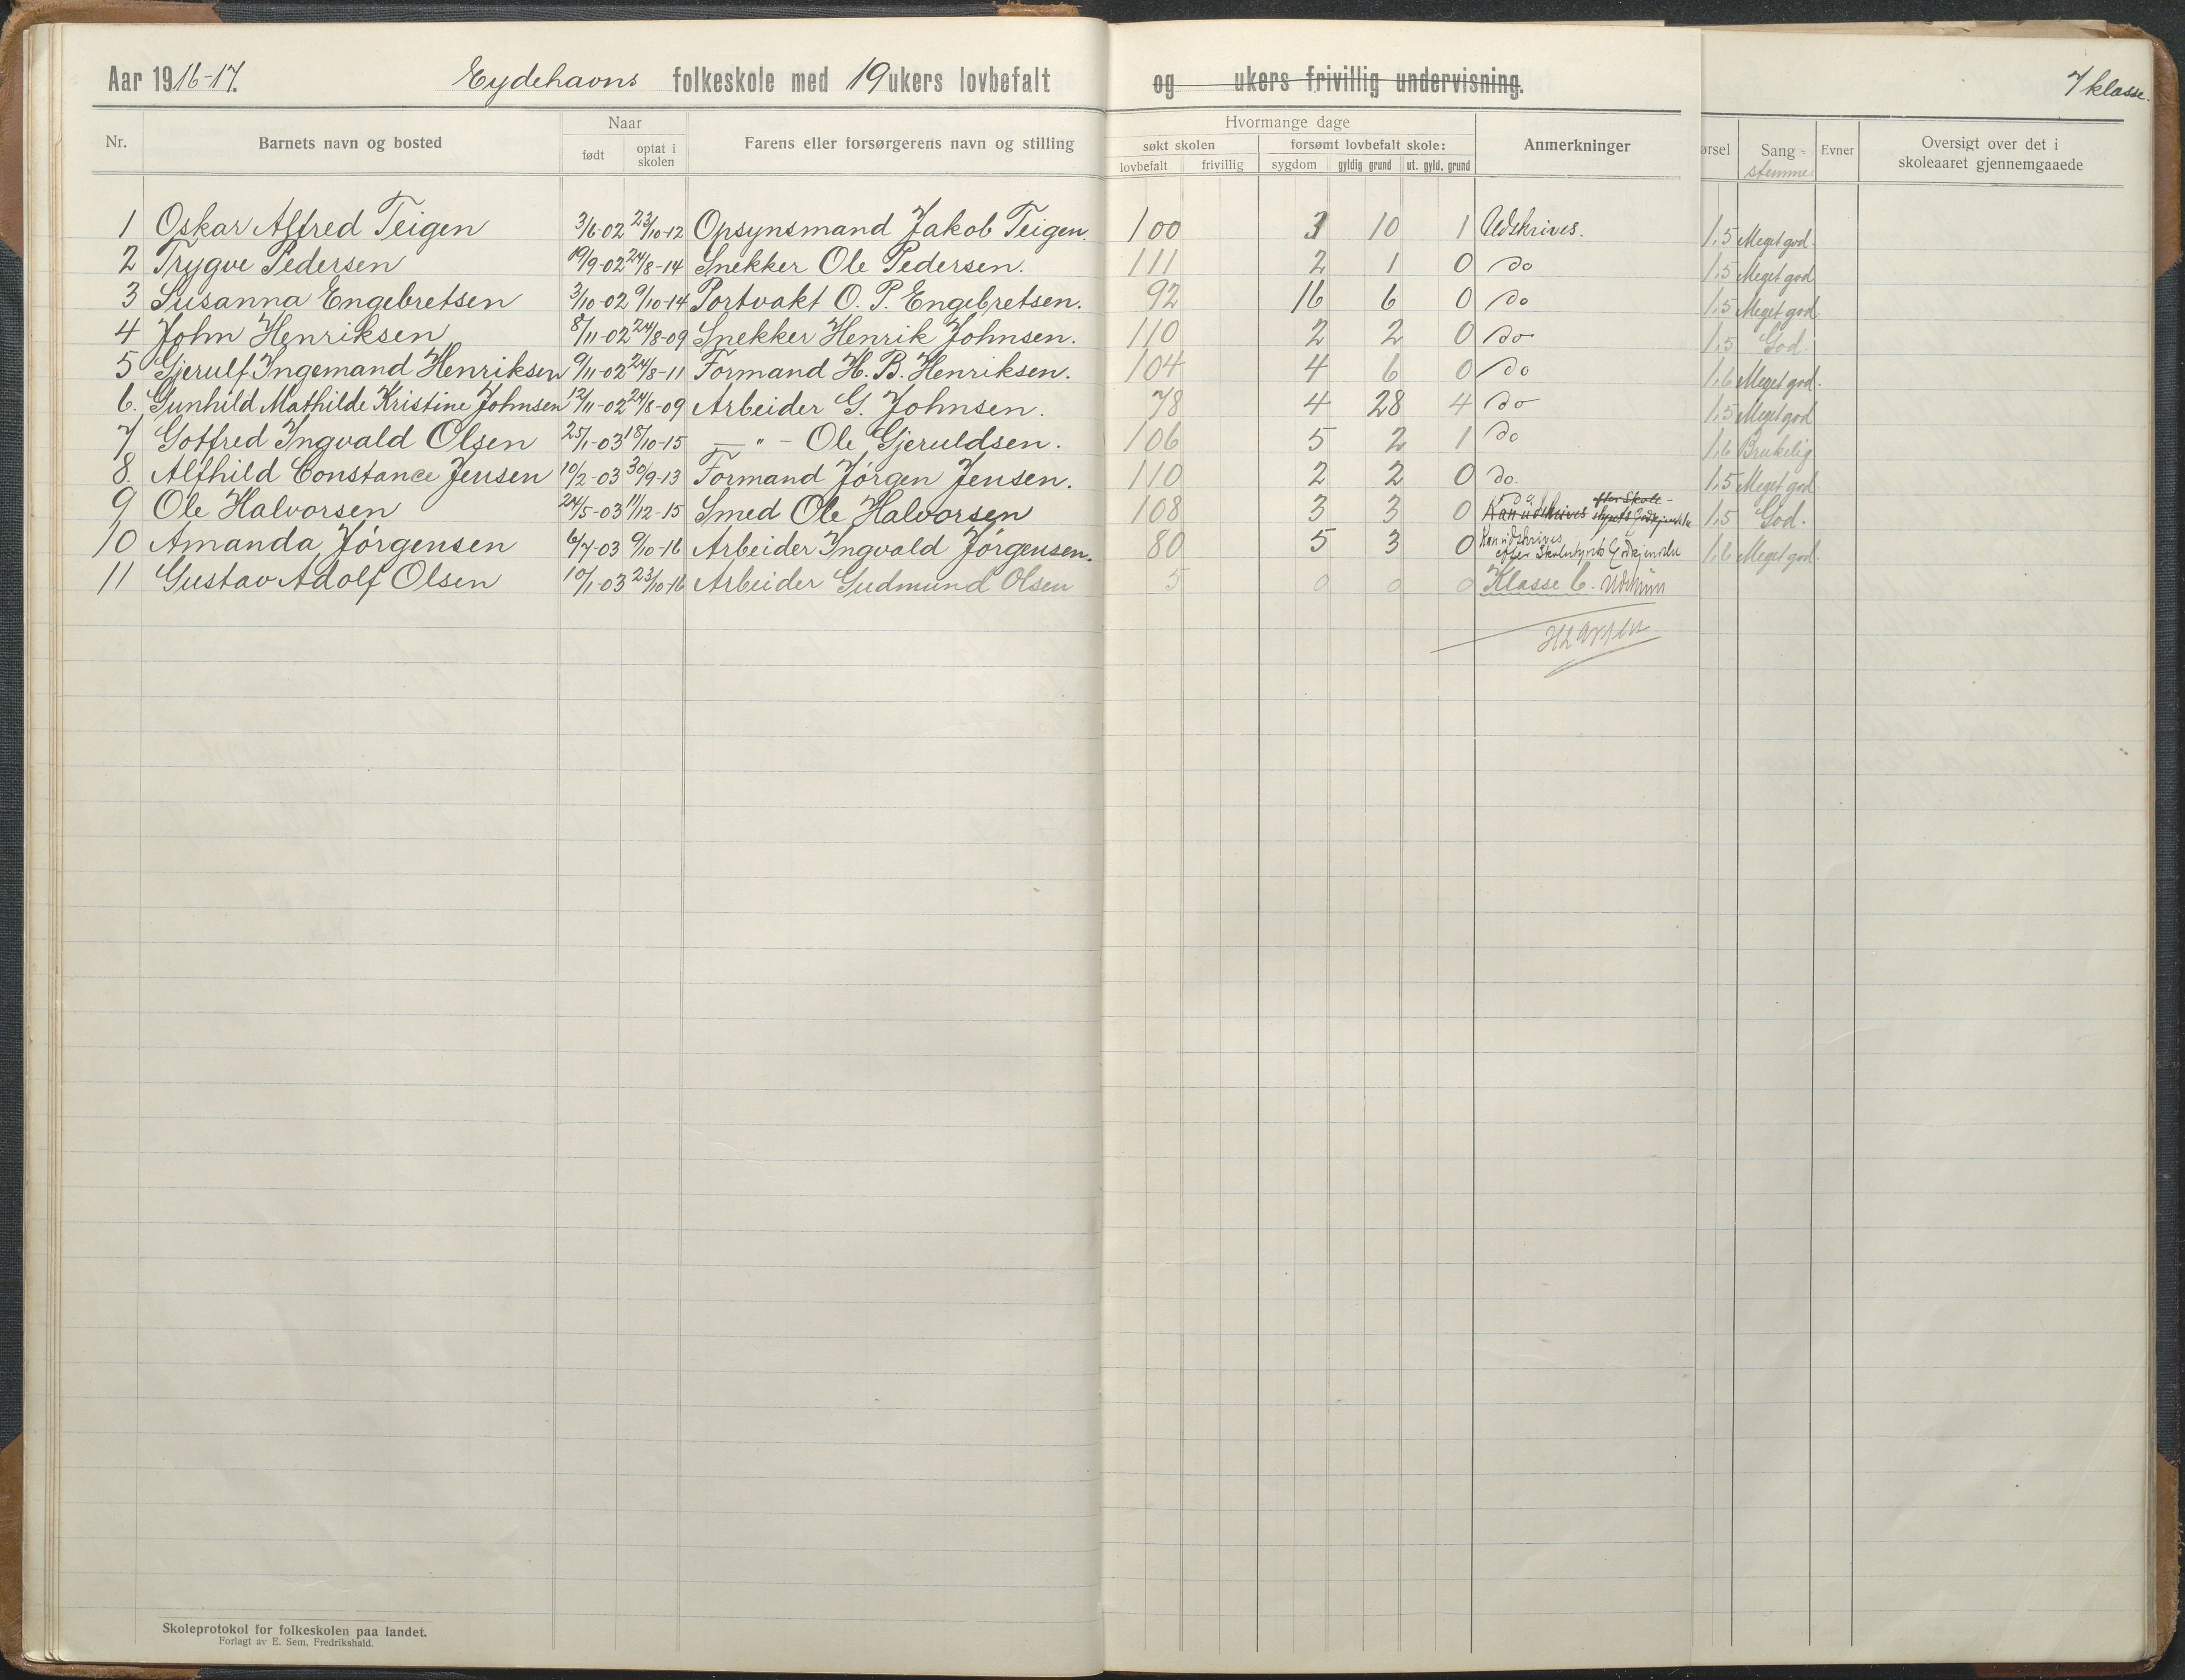 Aar 1916-17. Eydehavns folkeskole med 19 ukers lovbefalt og ukers frivillig undervisning. 7 klasse.
Nr. Barnets navn og bosted Naar født optat i skolen Farens eller forsørgerens navn og stilling Hvormange dage søkt skolen lovbefalt frivillig forsømt lovbefalt skole: sygdom gyldig grund ut. gyld. grund Anmerkninger ørsel Sang- stemme Evner Oversigt over det i skoleaaret gjennemgaaede
1 Oskar Alfred Teigen 3/6-02 23/10-12 Opsynsmand Jakob Teigen. 100 3 10 1 Udskrives. 1,5 Meget god.
2 Trygve Pedersen 19/9-02 24/8-14 Snekker Ole Pedersen. 111 2 1 0 do 1,5 Meget god
3 Susanna Engebretsen 3/10-02 9/10-14 Portvakt O. P. Engebretsen. 92 16 6 0 do 1,5 Meget god
4 John Henriksen 8/11-02 24/8-09 Snekker Henrik Johnsen. 110 2 2 0 do 1,5 God.
5 Gjerulf Ingemand Henriksen 9/11-02 24/8-11 Formand H. B. Henriksen. 104 4 6 0 do 1,6 Meget god.
6. Gunhild Mathilde Kristine Johnsen 12/11-02 24/8-09 Arbeider G. Johnsen. 78 4 28 4 do 1,5 Meget god
7 Gotfred Ingvald Olsen 25/1-03 18/10-15 — " - Ole Gjeruldsen. 106 5 2 1 do 1,6 Brukelig
8. Alfhild Constance Jensen 10/2-03 30/9-13 Formand Jørgen Jensen. 110 2 2 0 do. 1,5 Meget god
9 Ole Halvorsen 24/5-03 11/12-15 Smed Ole Halvorsen 108 3 3 0 Kan udskrives efter Skole- styrets Godkjendelse 1,5 God.
10 Amanda Jörgensen 6/7-03 9/10-16 Arbeider Ingvald Jörgensen. 80 5 3 0 Kan udskrives efter Skolestyrets Godkjendelse 1,6 Meget god.
11 Gustav Adolf Olsen 10/1-03 23/10-16 Arbeider Gudmund Olsen 5 0 0 0 Klasse C.
H Larsen
Skoleprotokol for folkeskolen paa landet.
Forlagt av E. Sem, Fredrikshald.